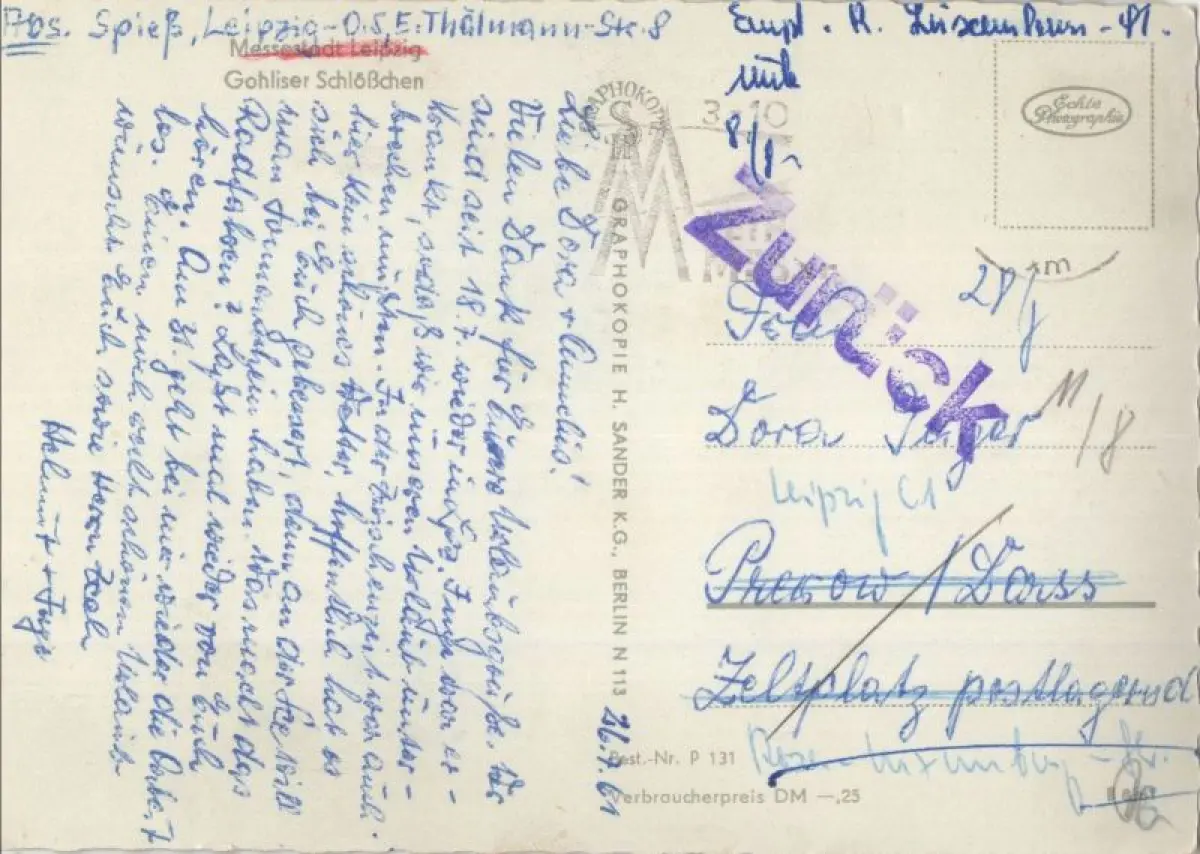 Abs. Spieß, Leipzig-O.5, E.-Thälmann-Str. 8
Messestadt Leipzig
Gohliser Schlößchen
Liebe Dora +
Vielen Dank für Eure Urlaubsgrüße. Wir
sind seit 18.7. wieder
krank, sodaß wir unseren Urlaub unter-
brechen mußten. In der Zwischenzeit war auch
hier kein schönes Wetter, hoffentlich hat es
sich bei Euch gebessert, denn an der See will
man Sonnenschein haben. Was macht das
Radfahren? Laßt mal wieder von Euch
hören. Am 31. geht bei mir wieder die Arbeit
los. Einen noch recht schönen Urlaub
wünscht Euch sowie Herrn
Helmut + Inge
26.7.61
GRAPHOKOPIE
GRAPHOKOPIE H. SANDER K.G., BERLIN N 113
Best.-Nr. P 131
Verbraucherpreis DM —,25
3-10
MM
Empf. R. -Str.
8/8
Echte
Photographie
Zurück
28/7
Dora
11/8
Leipzig C1
Prerow / Darss
Zeltplatz postlagernd
Rosa-Luxemburg-Str.